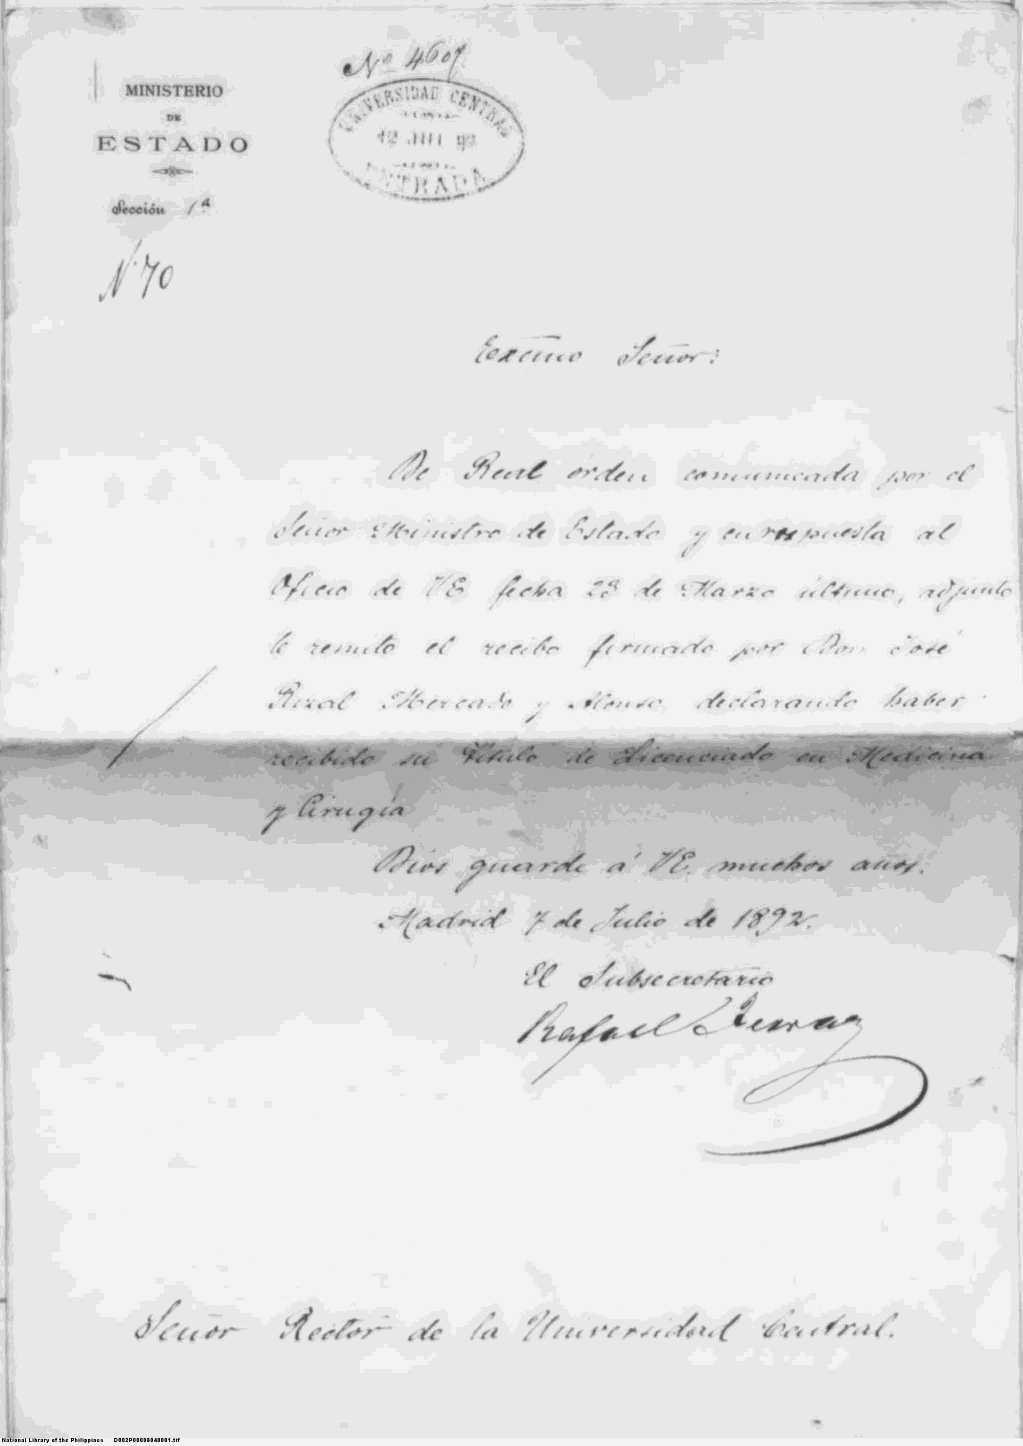 Nº 4607
MINISTERIO
DE
ESTADO
Sección 1ª
N. 70
UNIVERSIDAD CENTRAL
12 JUL 92
ENTRADA
Excmo Señor:
De Real órden comunicada por el
Señor Ministro de Estado y en respuesta al
Oficio de VE fecha 28 de Marzo último, adjunto
le remito el recibo firmado por Don José
Rizal Mercado y Alonso, declarando haber
recibido su Titulo de Licenciado en Medicina
y Cirugía
Dios guarde á VE. muchos años.
Madrid 7 de Julio de 1892.
El Subsecretario
Rafael
Señor Rector de la Universidad Central.
National Library of the Philippines D002P00009040001.tif